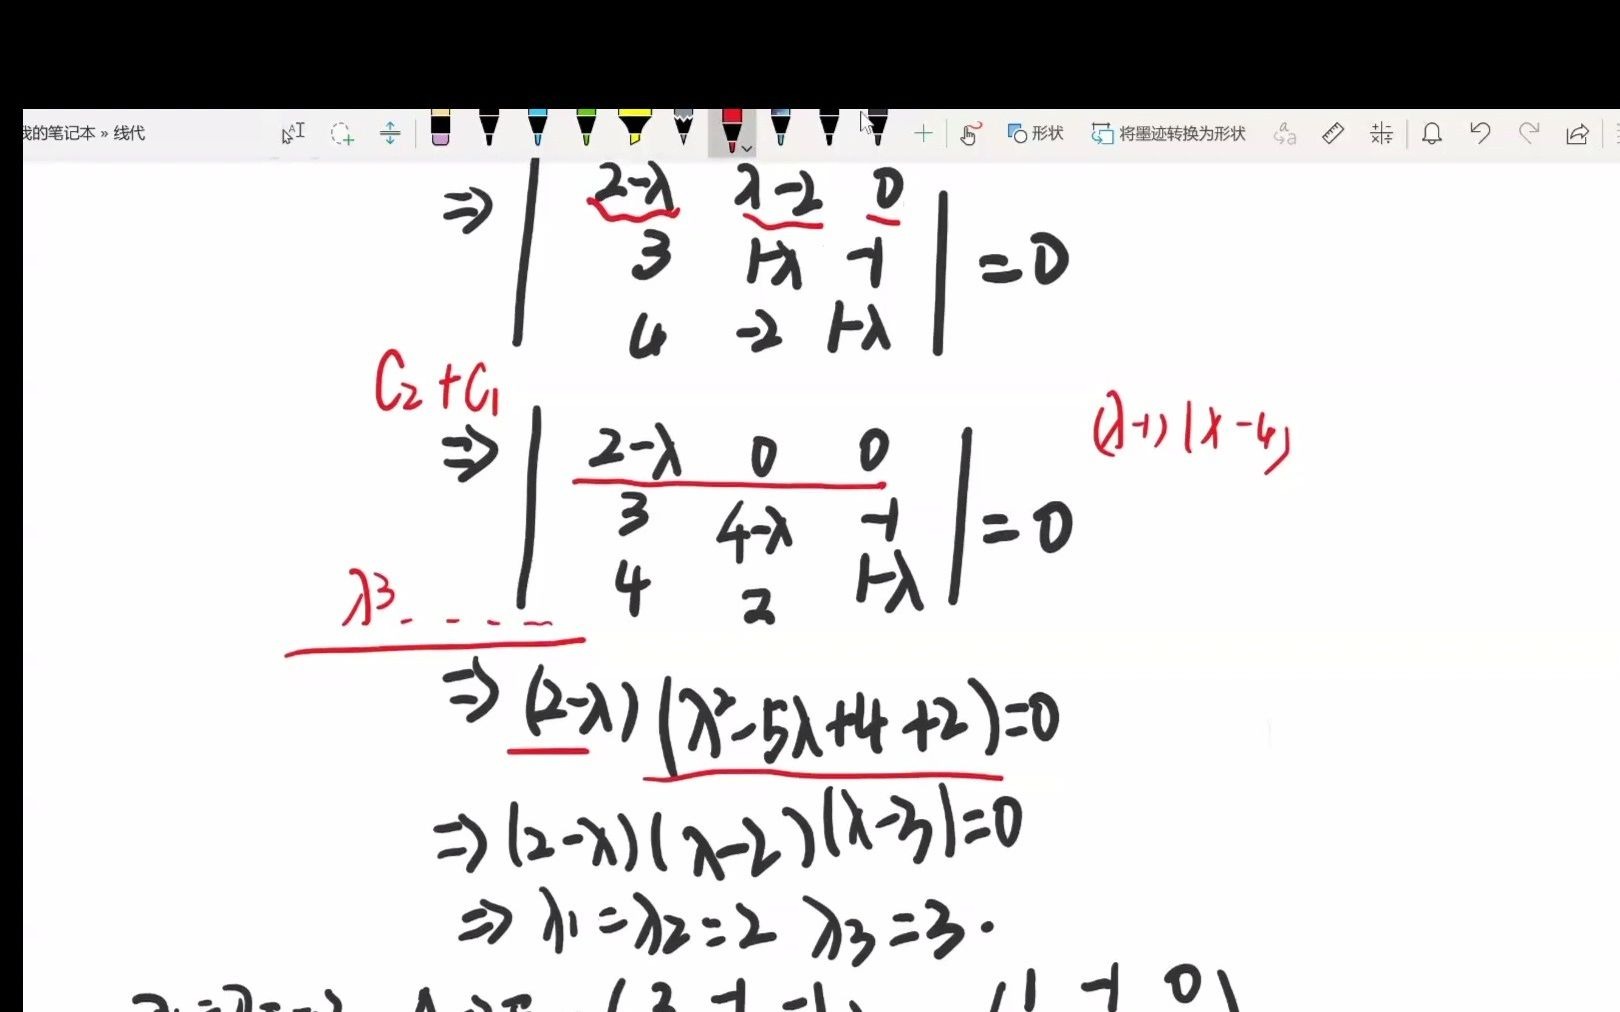 我的笔记本 » 线代 形状 将墨迹转换为形状
⇒ | 2-λ λ-2 0 |
3 1-λ -1 = 0
4 -2 1-λ
C₂+C₁
⇒ | 2-λ 0 0 | (λ-1)(λ-4)
3 4-λ -1 = 0
4 2 1-λ
λ³ - - - -
⇒ (2-λ)(λ²-5λ+4+2)=0
⇒ (2-λ)(λ-2)(λ-3)=0
⇒ λ₁=λ₂=2 λ₃=3.
1 -1 0